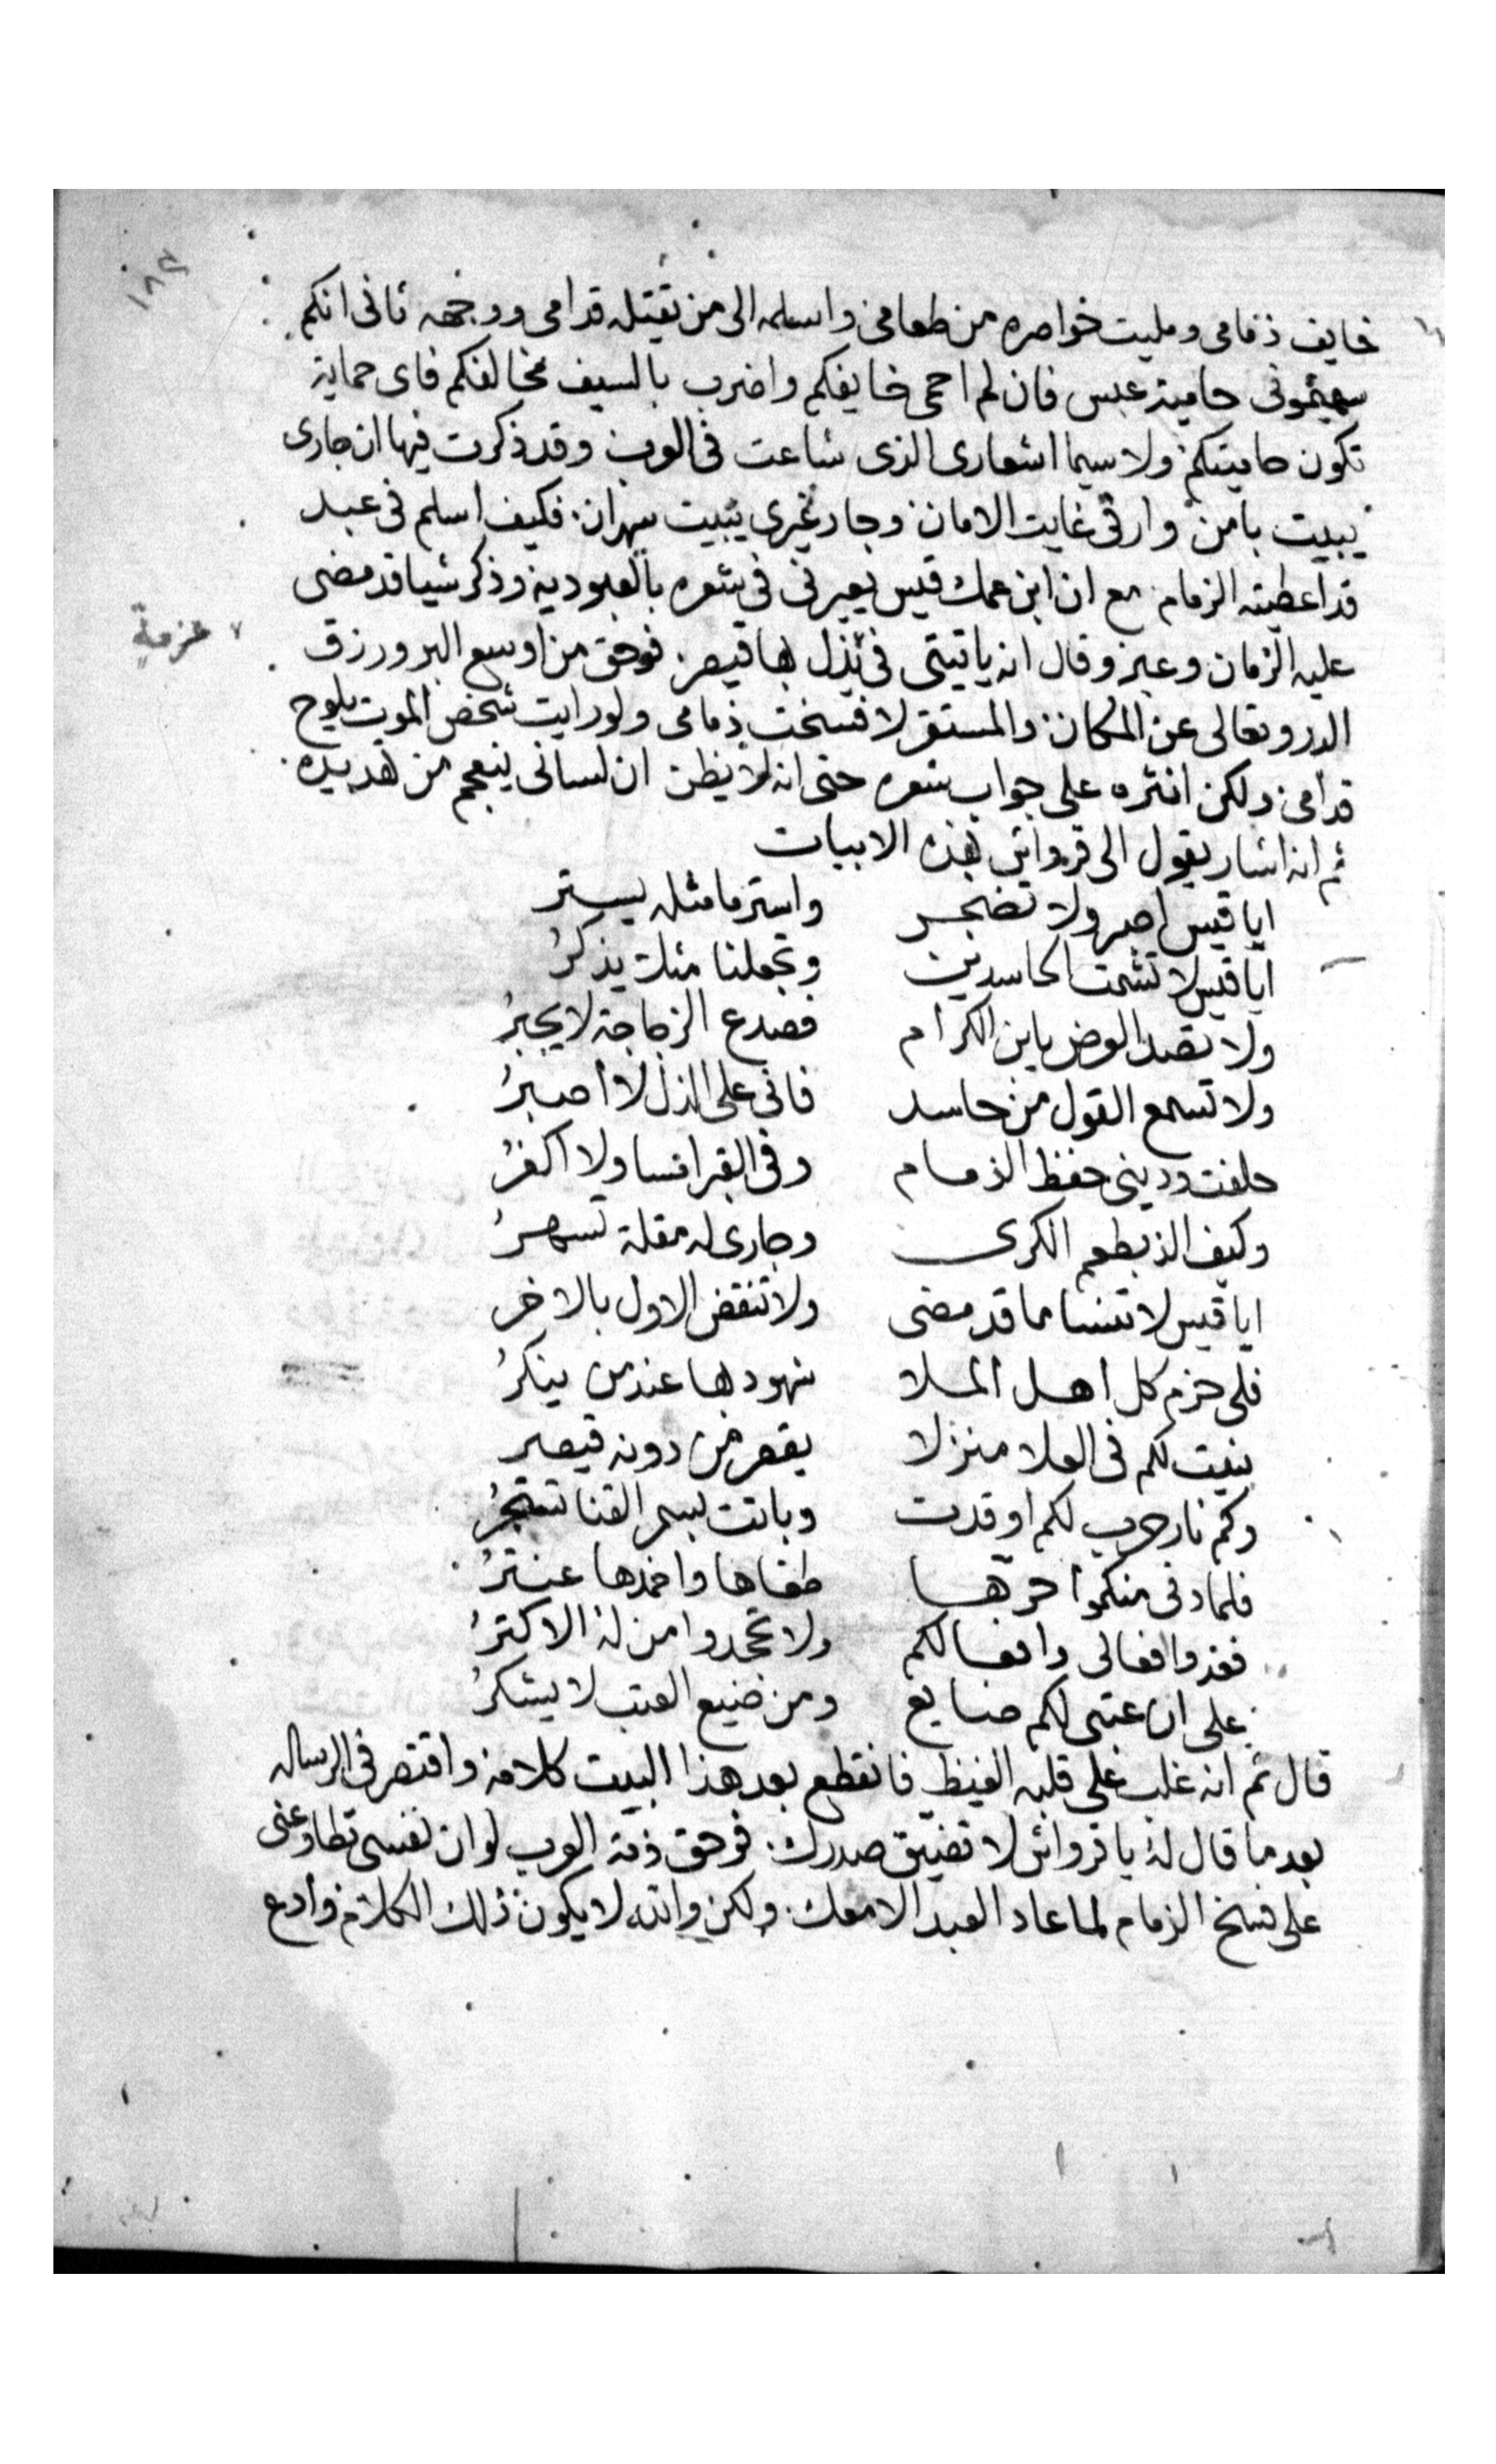 ١٨٣
خايف ذمامى ومليت خواصره من طعامى واسلمه الى من يقتله قدامى ووجهه ثانى انكم
سميتمونى حامية عبس فان لم احمى خايفكم واضرب بالسيف مخالفكم فاى حماية
تكون حاميتكم ولا سيما اشعارى الذى شاعت فى العرب وقد ذكرت فيها ان جارى
يبيت بامن وارقى غايت الامان وجار غيرى يبيت سهران فكيف اسلم فى عبد
قد اعطيته الزمام مع ان ابن عمك قيس يعيرنى فى شعره بالعبودية وذكر شيا قد مضى
عليه الزمان وعبر وقال انه ياتيتى فى نذل بها قيصر فوحق من اوسع البر ورزق
عزمة
الدر وتعالى عن المكان والمستقر لا فسخت ذمامى ولو رايت شخص الموت يلوح
قدامى ولكن انثره على جواب شعره حتى انه لا يظن ان لسانى ينعجم من هديره
ثم انه اشار يقول الى قرواش بهذه الابيات
ايا قيس اصبر ولا تضجر واستر ما مثله يستر
ايا قيس لا تشمت الحاسدين وتجعلنا مثلت يذكرُ
ولا تصد العرض يابن الكرام فصدع الزجاجة لا يجبرُ
ولا تسمع القول من حاسد فانى على الذل لا أصبرُ
حلفت ودينى حفظ الذمام وفى القبر انسا ولا اكفرُ
وكيف الذ بطعم الكرى وجارى له مقلة تسهرُ
ايا قيس لا تنسا ما قد مضى ولا تنقض الاول بالاخر
فلى حزم كل اهل الملا شهودها عند من ينكرُ
بنيت لكم فى العلا منزلا يقصر من دونه قيصر
وكم نار حرب لكم اوقدت وباتت بسمر القنا تسجرُ
فلما دنى منكموا حرّها طفاها واخمدها عنترُ
فعدوا فعالى وافعالكم ولا تجحدوا من له الاكثرُ
على ان عتبى لكم ضايع ومن ضيع العتب لا يشكرُ
قال ثم انه غلب على قلبه الغيظ فانقطع بعد هذا البيت كلامه واقتصر فى الرساله
بعد ما قال له يا قرواش لا تضيق صدرك فوحق ذمة العرب لو ان نفسى تطاوعنى
على فسخ الزمام لما عاد العبد الا معك ولكن والله لا يكون ذلك الكلام وأدع